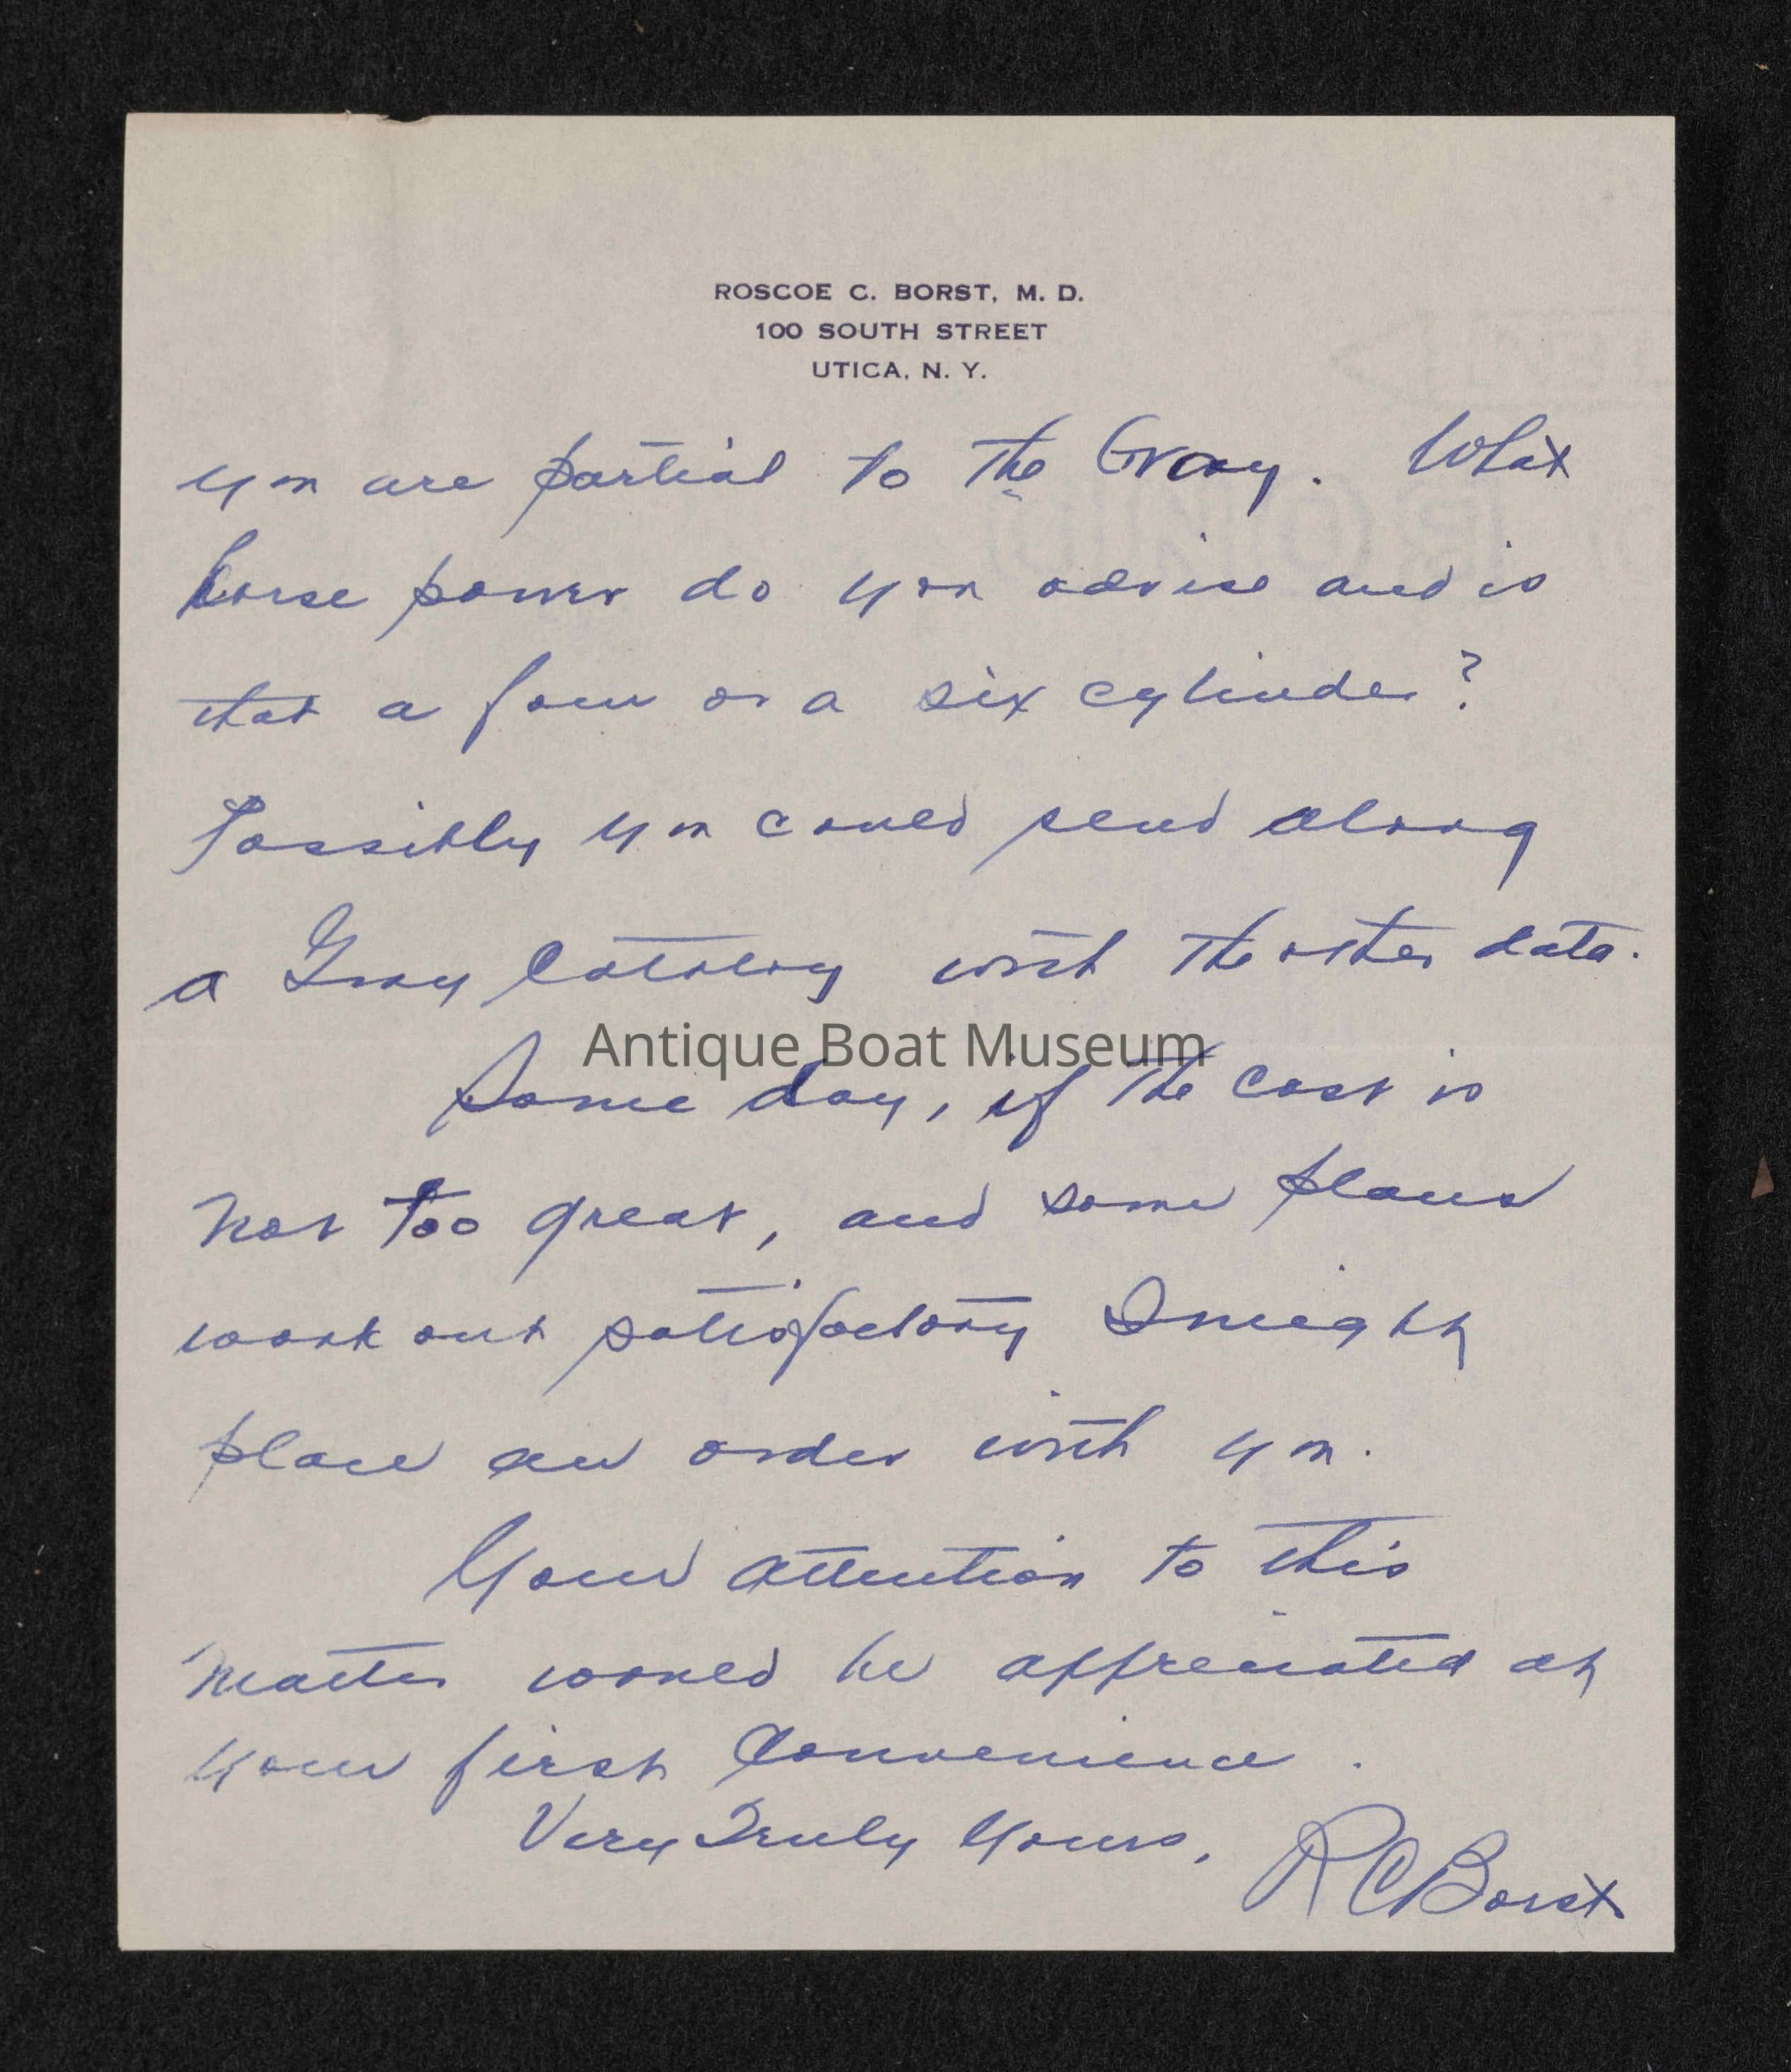 ROSCOE C. BORST, M. D.
100 SOUTH STREET
UTICA, N. Y.
you are partial to the Gray. What
horse power do you advise and is
that a four or a six cylinder?
Possibly you could send along
a Gray Catalog with the other data.
Antique Boat Museum
Some day, if the cost is
not too great, and some plans
work out satisfactory I might
place an order with you.
Your attention to this
matter would be appreciated at
your first convenience.
Very Truly Yours, RCBorst